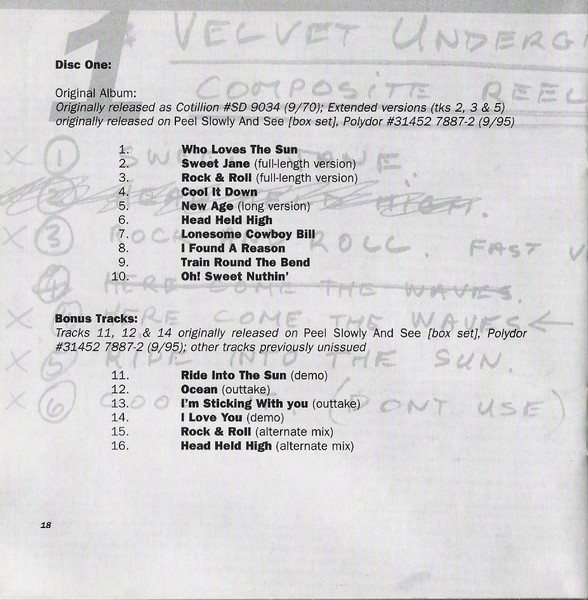 1
VELVET UNDERG
COMPOSITE REEL
Disc One:
Original Album:
Originally released as Cotillion #SD 9034 (9/70); Extended versions (tks 2, 3 & 5)
originally released on Peel Slowly And See [box set], Polydor #31452 7887-2 (9/95)
1. Who Loves The Sun
2. Sweet Jane (full-length version)
3. Rock & Roll (full-length version)
4. Cool It Down
5. New Age (long version)
6. Head Held High
7. Lonesome Cowboy Bill
8. I Found A Reason
9. Train Round The Bend
10. Oh! Sweet Nuthin'
X 1 SWEET JANE.
2 HIGH.
X 3 ROCK AND ROLL. FAST V
4 HERE COME THE WAVES.
X HERE COME THE WAVES ←
X 5 RIDE INTO THE SUN.
X 6 (DONT USE)
Bonus Tracks:
Tracks 11, 12 & 14 originally released on Peel Slowly And See [box set], Polydor
#31452 7887-2 (9/95); other tracks previously unissued
11. Ride Into The Sun (demo)
12. Ocean (outtake)
13. I'm Sticking With you (outtake)
14. I Love You (demo)
15. Rock & Roll (alternate mix)
16. Head Held High (alternate mix)
18